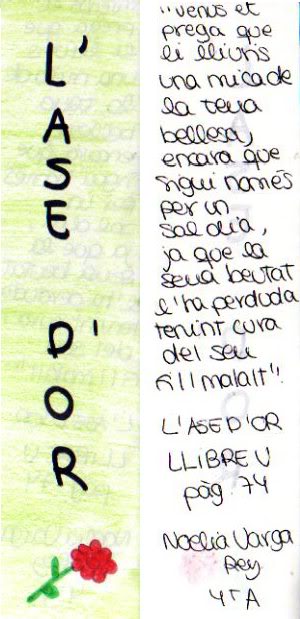 L'ASE D'OR
"venus et
prega que
li lliuris
una mica de
la teva
bellesa,
encara que
sigui només
per un
sol dia,
ja que la
seva beutat
l'ha perduda
tenint cura
del seu
fill malalt".
L'ASE D'OR
LLIBRE V
pàg. 74
Noelia Varga
Rey
4T A